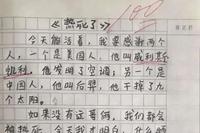 《热死了》 100
今天能活着，我要感谢两个
人，一个是美国人，他叫威利斯
凯利，他发明了空调；另一个是
中国人，他叫后羿，他干掉了九
个太阳。
如果没有这哥俩，我们都会
被热死，今天我才明白，什么